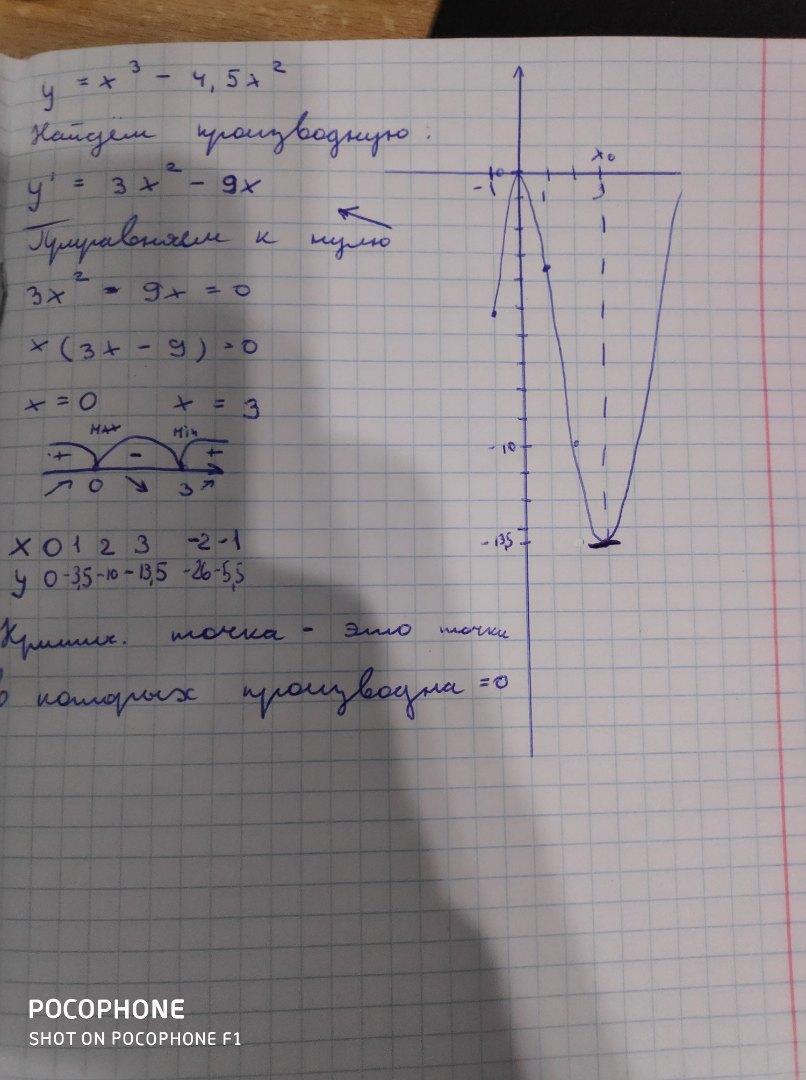 y = x³ - 4,5x²
Найдём производную:
y' = 3x² - 9x
Приравняем к нулю
3x² - 9x = 0
x(3x - 9) = 0
x = 0 x = 3
max min
+ - +
0 3
x 0 1 2 3 -2 -1
y 0 -3,5 -10 -13,5 -26 -5,5
Критич. точка - это точки
в которых производна =0
x₀
-1 0 1 3
-10
-13,5
POCOPHONE
SHOT ON POCOPHONE F1